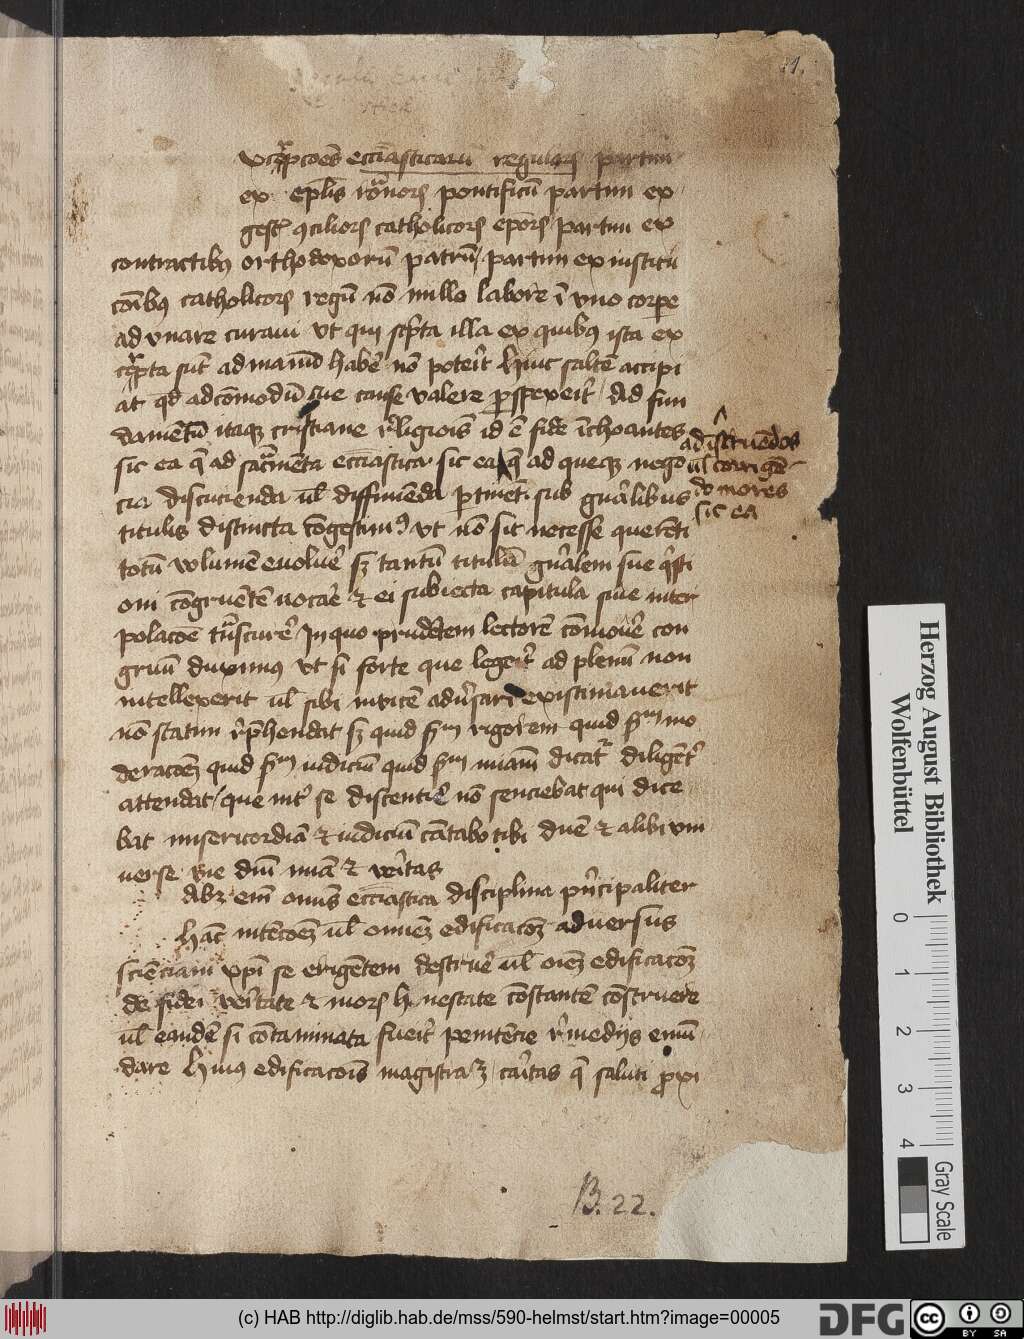 1.
vcerpcōes ecclīasticarū regularū partim
ex epl̄is rōnorū pontificū partim ex
gest̄ ꝯciliorū catholicorū epōrū partim ex
contractibꝰ orthodoxorū patrū partim ex institu
cōibꝰ catholicorū regū nō nullo labore ī vno corpe
ad vnare curaui vt qui scp̄ta illa ex quibꝰ ista ex
cerpta sūt ad manū habē nō poterit hinc saltē accipi
at qd ad cōmodū sue cause valere ꝑspexerit Ad fun
damētū itaqꝫ cristiane religiois id ē fide īchoantes
sic ea q̄ ad sacramēta ecclīastica sic ea q̄ ad queqꝫ nego
ad īstruēdos
ul̄ corrigē
do mores
sic ea
cia discucienda ul̄ diffiniēda ꝑtinēt sub gn̄alibus
titulis distincta cōgessimꝰ vt nō sit necesse querēti
totū volumē euoluē sꝫ tantū titulū gn̄alem sue q̄sti
oni cōgruētē notāe ⁊ ei subiecta capitula sine inter
polacōe trāscurē In quo prudētem lectorē cōmouē con
gruū duximꝰ vt si forte que legerit ad plenū non
intellexerit ul̄ sibi inuicē aduersari existimauerit
nō statim rep̄hendat sꝫ quid scdm rigorem quid scdm mo
deracōeꝫ quid scdm iudiciū quid scdm miam̄ dicat diligēter
attendat que int̄ se discentire nō senciebat qui dice
bat misericordiā ⁊ iudiciū cātabo tibi dn̄e ⁊ alibi vni
uerse vie dn̄i mīa ⁊ veritas
Abꝫ em̄ omīs ecclīastica disciplina pn̄cipaliter
hāc intēcōeꝫ ul̄ omneꝫ edificacōꝫ aduersus
sciēciam xp̄i se erigētem destruē ul̄ oīeꝫ edificacōꝫ
de fidei veritate ⁊ morū honestate cōstantē cōstruere
ul̄ eandē si cōtaminata fuerit penitēcie remedijs emū
dare Huius edificacōis magistra ē caritas q̄ saluti proxi
B. 22.
Herzog August Bibliothek
Wolfenbüttel
0 1 2 3 4
Gray Scale
(c) HAB http://diglib.hab.de/mss/590-helmst/start.htm?image=00005
DFG
cc BY SA